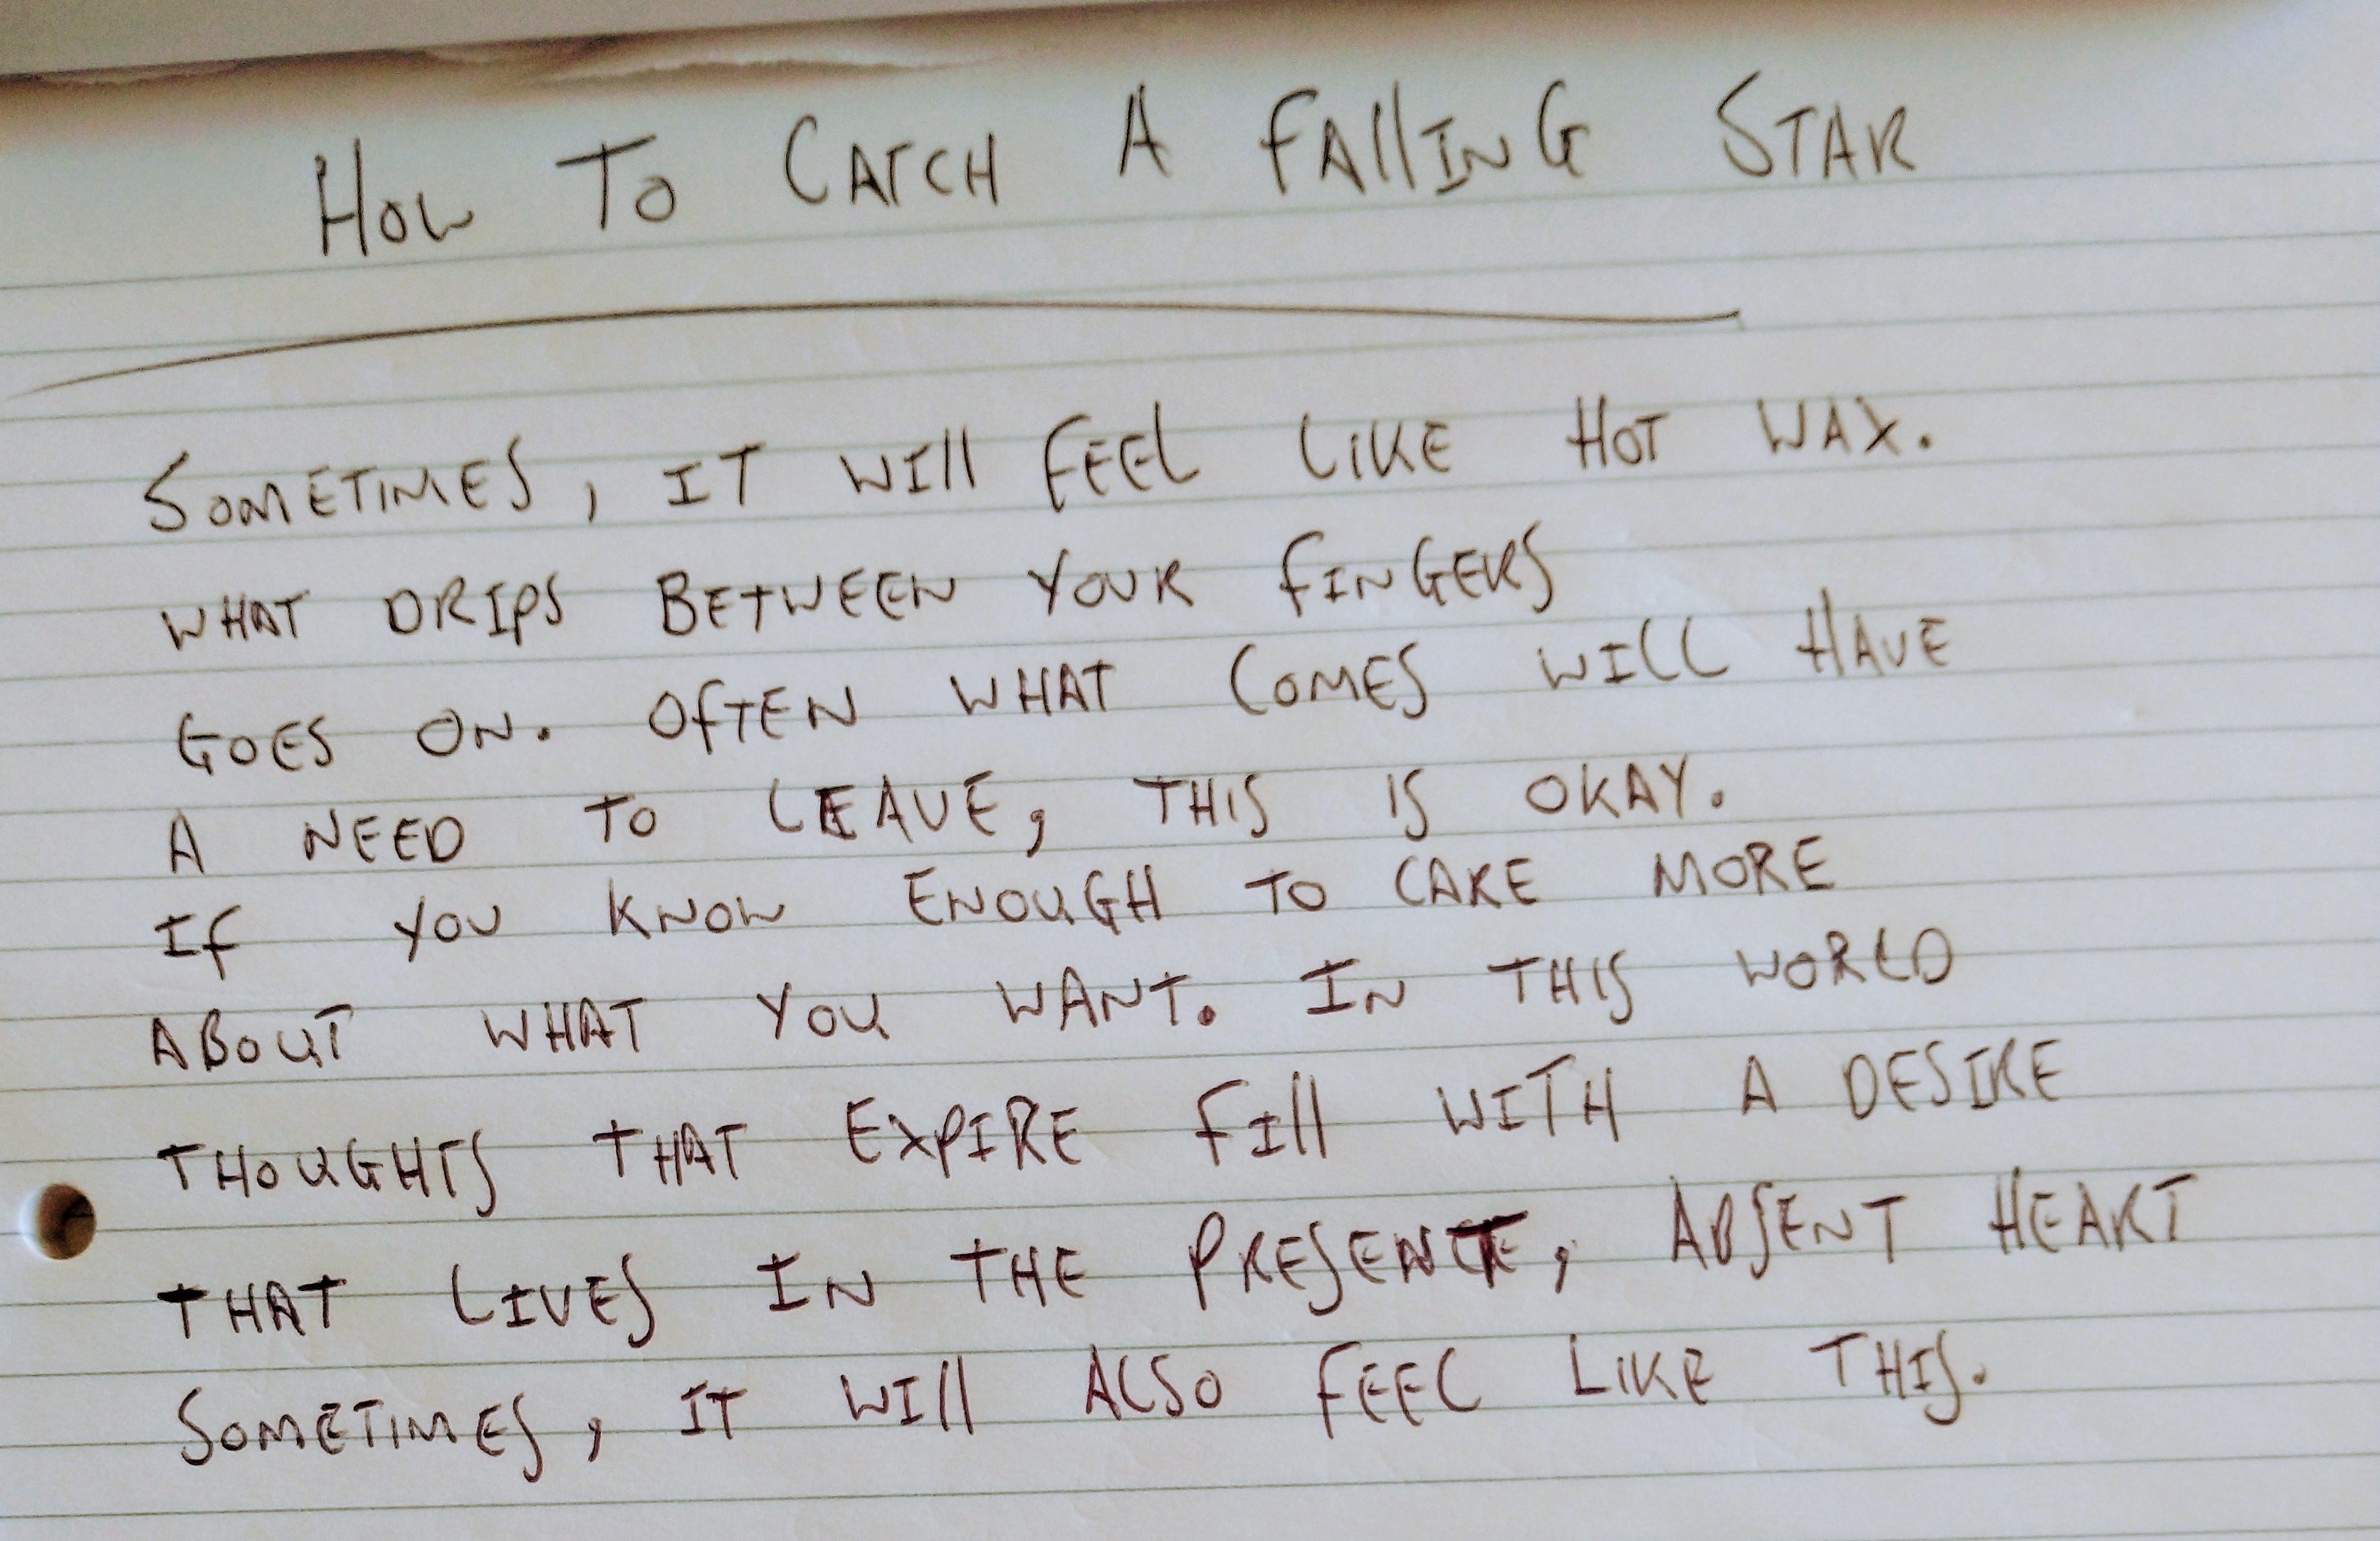 HOW TO CATCH A FALLING STAR
SOMETIMES, IT WILL FEEL LIKE HOT WAX.
WHAT DRIPS BETWEEN YOUR FINGERS
GOES ON. OFTEN WHAT COMES WILL HAVE
A NEED TO LEAVE, THIS IS OKAY.
IF YOU KNOW ENOUGH TO CARE MORE
ABOUT WHAT YOU WANT. IN THIS WORLD
THOUGHTS THAT EXPIRE FILL WITH A DESIRE
THAT LIVES IN THE PRESENT, ABSENT HEART
SOMETIMES, IT WILL ALSO FEEL LIKE THIS.